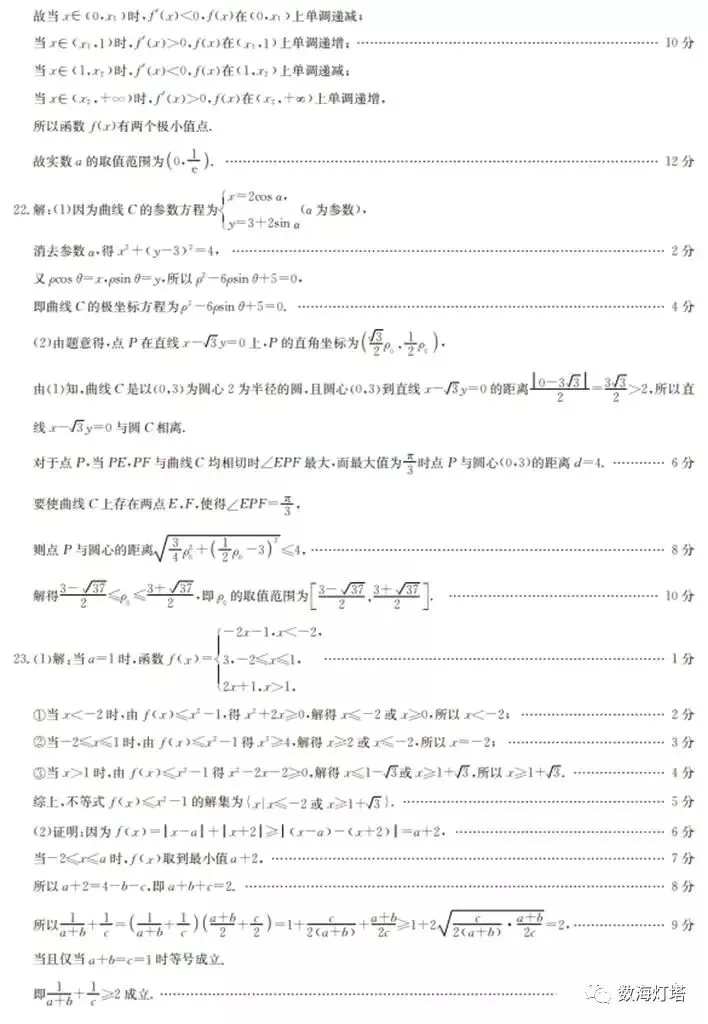 故当x∈(0,x₁)时,f′(x)<0,f(x)在(0,x₁)上单调递减;
当x∈(x₁,1)时,f′(x)>0,f(x)在(x₁,1)上单调递增; …… 10分
当x∈(1,x₂)时,f′(x)<0,f(x)在(1,x₂)上单调递减;
当x∈(x₂,+∞)时,f′(x)>0,f(x)在(x₂,+∞)上单调递增,
所以函数f(x)有两个极小值点.
故实数a的取值范围为(0,1/e). …… 12分
22.解:(1)因为曲线C的参数方程为{x=2cos α, y=3+2sin α (α为参数),
消去参数α,得x²+(y-3)²=4, …… 2分
又ρcos θ=x,ρsin θ=y,所以ρ²-6ρsin θ+5=0,
即曲线C的极坐标方程为ρ²-6ρsin θ+5=0. …… 4分
(2)由题意得,点P在直线x-√3y=0上,P的直角坐标为(√3/2ρ₀,1/2ρ₀),
由(1)知,曲线C是以(0,3)为圆心2为半径的圆,且圆心(0,3)到直线x-√3y=0的距离|0-3√3|/2=3√3/2>2,所以直
线x-√3y=0与圆C相离.
对于点P,当PE,PF与曲线C均相切时∠EPF最大,而最大值为π/3时点P与圆心(0,3)的距离d=4. …… 6分
要使曲线C上存在两点E,F,使得∠EPF=π/3,
则点P与圆心的距离√(3/4ρ₀²+(1/2ρ₀-3)²)≤4, …… 8分
解得(3-√37)/2≤ρ₀≤(3+√37)/2,即ρ₀的取值范围为[(3-√37)/2,(3+√37)/2]. …… 10分
23.(1)解:当a=1时,函数f(x)={-2x-1,x<-2, 3,-2≤x≤1, 2x+1,x>1. …… 1分
①当x<-2时,由f(x)≤x²-1,得x²+2x≥0,解得x≤-2或x≥0,所以x<-2; …… 2分
②当-2≤x≤1时,由f(x)≤x²-1得x²≥4,解得x≥2或x≤-2,所以x=-2; …… 3分
③当x>1时,由f(x)≤x²-1得x²-2x-2≥0,解得x≤1-√3或x≥1+√3,所以x≥1+√3. …… 4分
综上,不等式f(x)≤x²-1的解集为{x|x≤-2或x≥1+√3}. …… 5分
(2)证明:因为f(x)=|x-a|+|x+2|≥|(x-a)-(x+2)|=a+2, …… 6分
当-2≤x≤a时,f(x)取到最小值a+2, …… 7分
所以a+2=4-b-c,即a+b+c=2. …… 8分
所以1/(a+b)+1/c=(1/(a+b)+1/c)((a+b)/2+c/2)=1+c/(2(a+b))+(a+b)/2c≥1+2√(c/(2(a+b))·(a+b)/2c)=2, …… 9分
当且仅当a+b=c=1时等号成立.
即1/(a+b)+1/c≥2成立. ……
数海灯塔